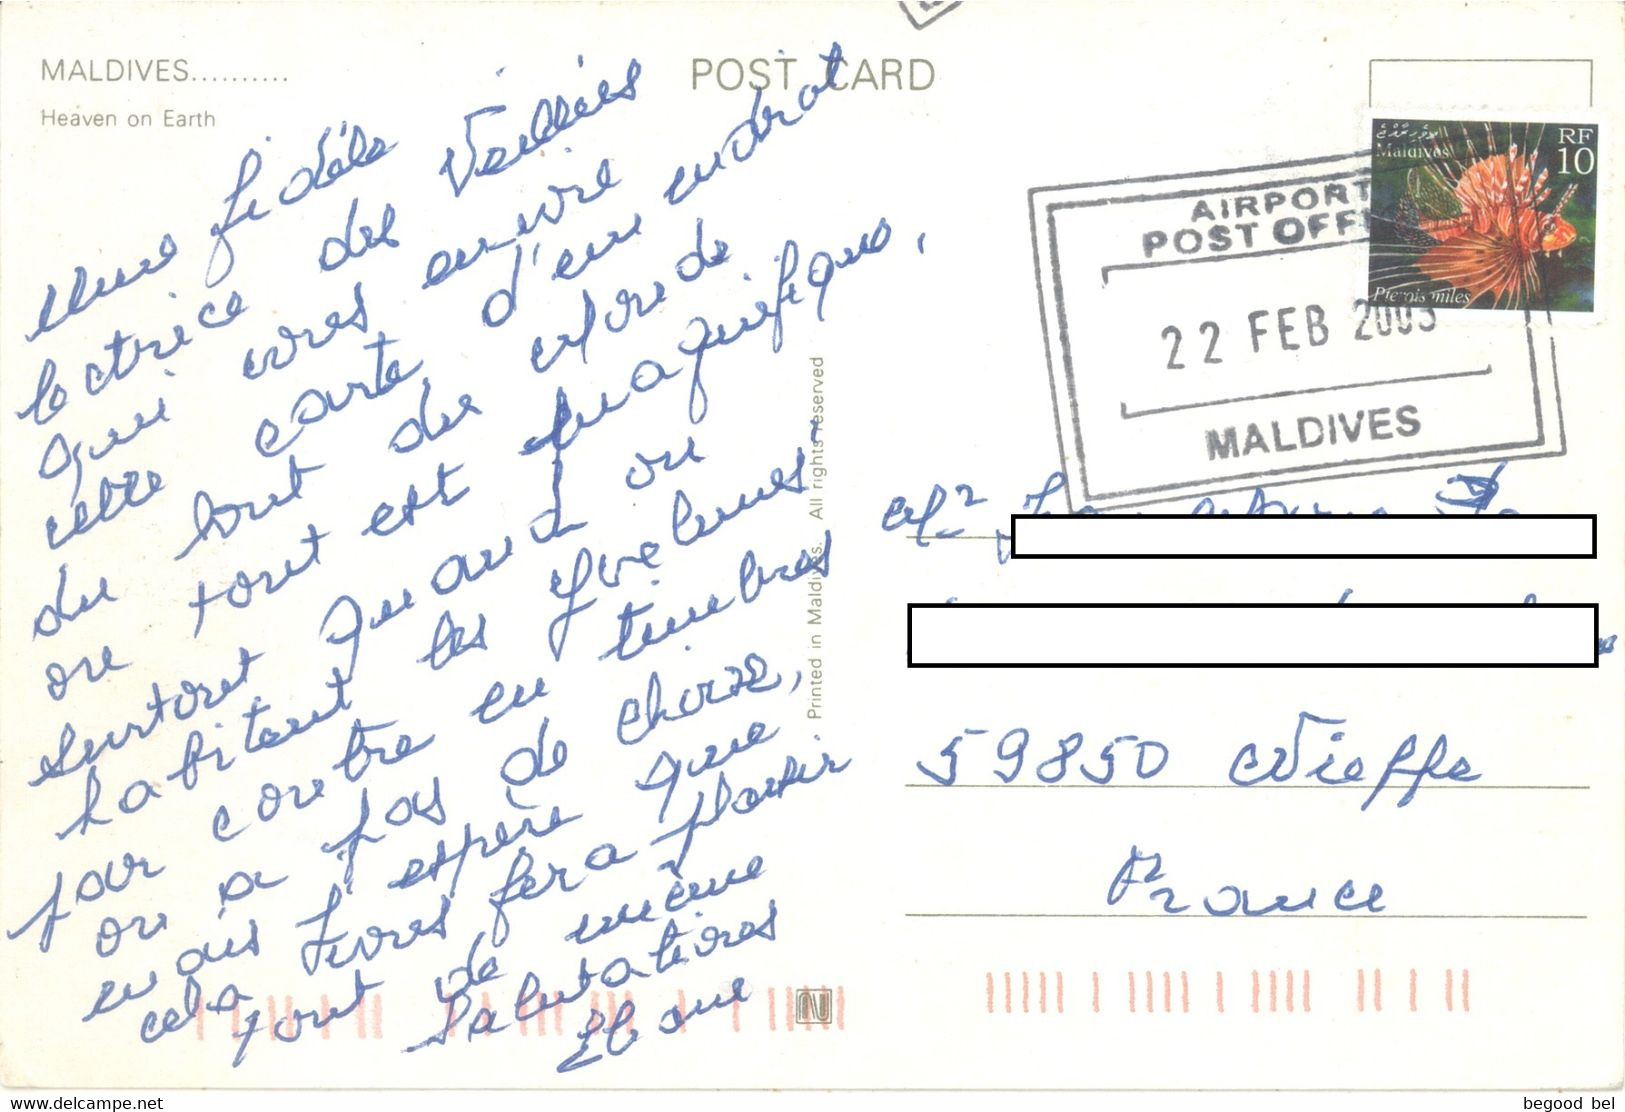 MALDIVES..........
Heaven on Earth
POST CARD
Une fidèle
lectrice des Veillées
qui vous envoie
cette carte d'un endroit
du bout du monde
ou tout est magnifique,
surtout quand on
habitant les Yvelines
pour contre en timbres
on a pas de choix,
mais j'espère que
cela vous fera plaisir
tout de même
Salutations
Printed in Maldives. All rights reserved
ދިވެހިރާއްޖެ
Maldives
RF
10
Pterois miles
AIRPORT
POST OFFI
22 FEB 2003
MALDIVES
59850 Nieppe
France
https://www.delcampe.net
begood_bel